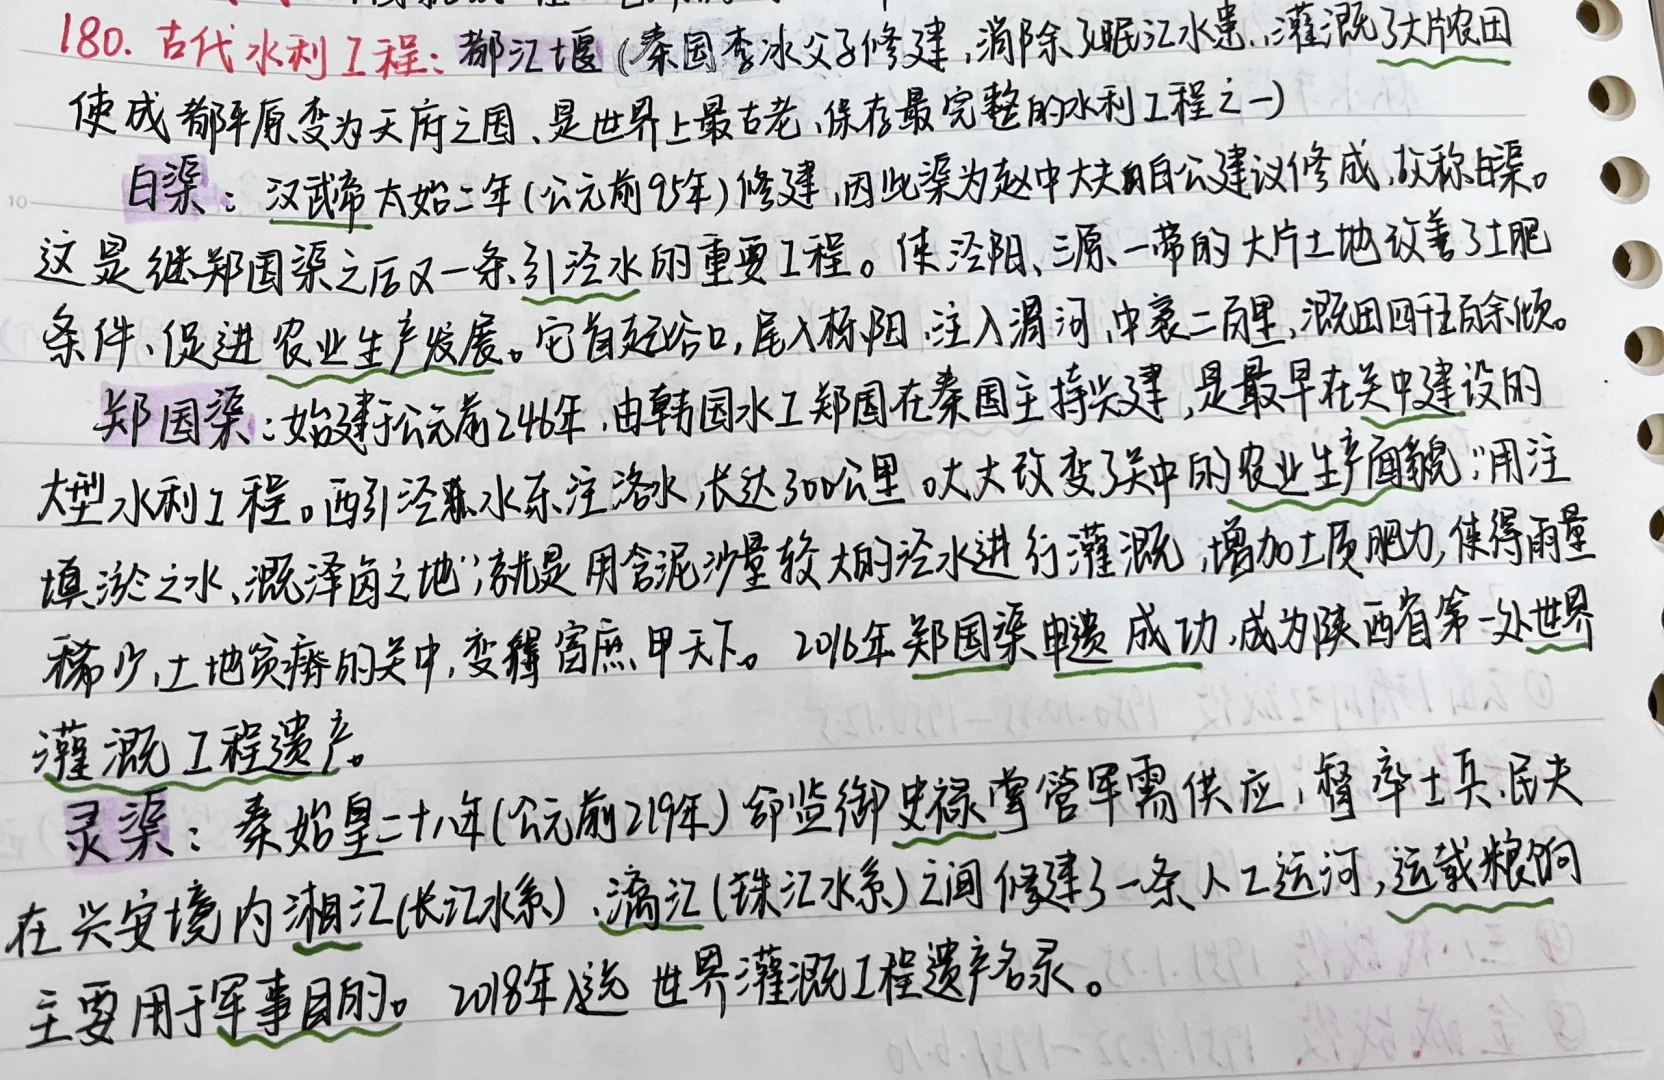 180. 古代水利工程：都江堰（秦国李冰父子修建，消除了岷江水患，灌溉了大片农田
使成都平原变为天府之国、是世界上最古老、保存最完整的水利工程之一）
白渠：汉武帝太始二年（公元前95年）修建，因此渠为赵中大夫白公建议修成，故称白渠。
这是继郑国渠之后又一条引泾水的重要工程。使泾阳、三原一带的大片土地改善了土肥
条件、促进农业生产发展。它首起谷口，尾入栎阳，注入渭河，中袤二百里，溉田四千五百余顷。
郑国渠：始建于公元前246年，由韩国水工郑国在秦国主持兴建，是最早在关中建设的
大型水利工程。西引泾水东注洛水，长达300公里。大大改变了关中的农业生产面貌，“用注
填淤之水、溉泽卤之地”，就是用含泥沙量较大的泾水进行灌溉，增加土质肥力，使得雨量
稀少，土地贫瘠的关中，变得富庶甲天下。2016年郑国渠申遗成功，成为陕西省第一处世界
灌溉工程遗产。
灵渠：秦始皇二十八年（公元前219年）命监御史禄掌管军需供应，督率士兵、民夫
在兴安境内湘江（长江水系）、漓江（珠江水系）之间修建了一条人工运河，运载粮饷
主要用于军事目的。2018年入选世界灌溉工程遗产名录。